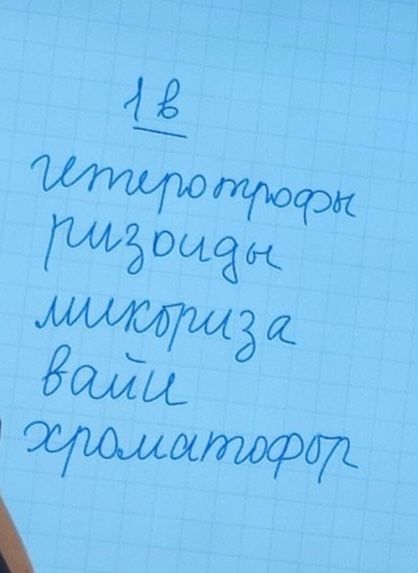 1 в
гетеротрофы
ризоиды
микориза
вайи
хроматофор